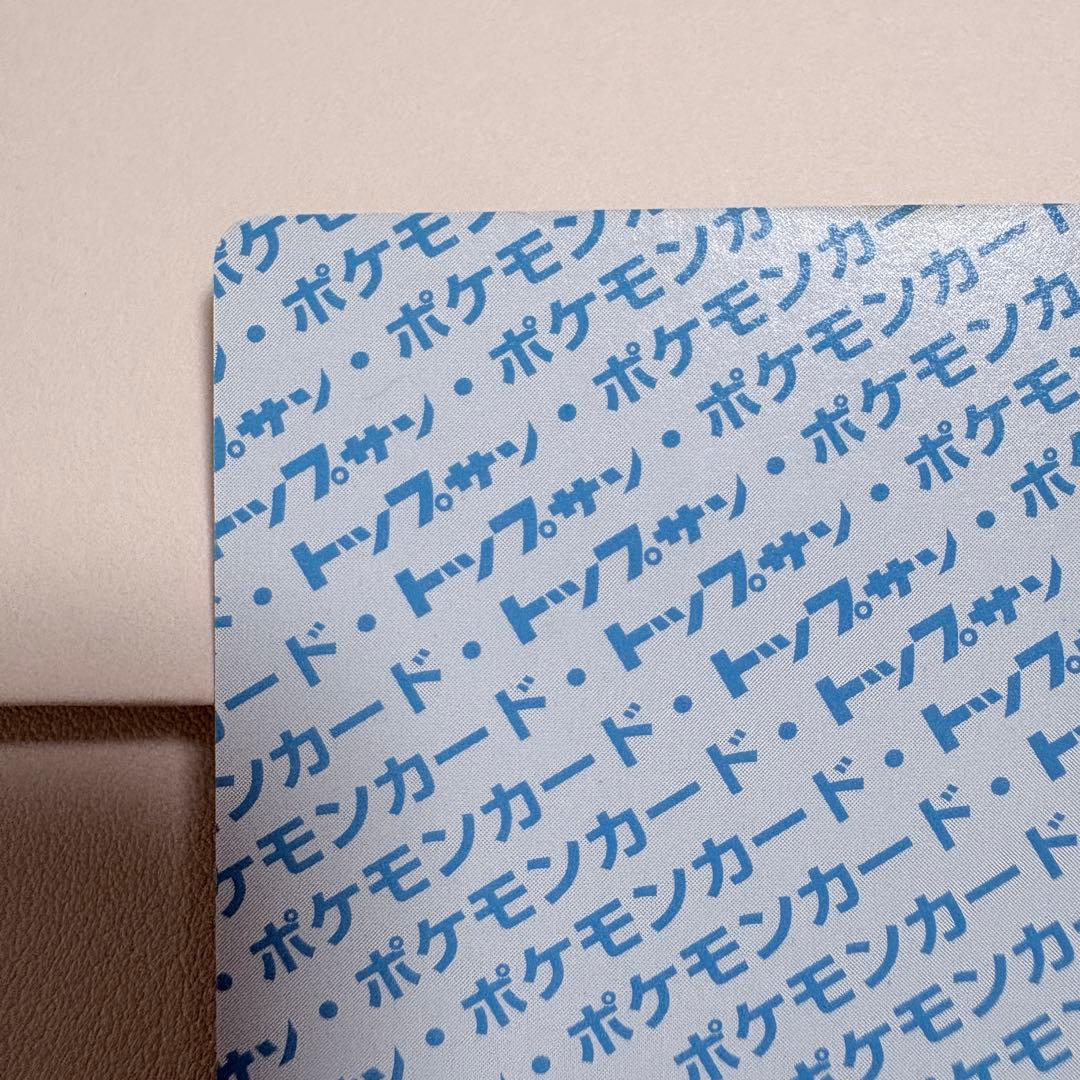 ポケモ
・ポケモン
プサン・ポケモンカ
トップサン・ポケモンカー
・トップサン・ポケモンカー
ード・トップサン・ポケモンカード
ンカード・トップサン・ポケモンカ
ケモンカード・トップサン・ポケモン
・ポケモンカード・トップサン・ポケモ
・ポケモンカード・トップサン・ポケ
トップサン・ポケモンカード・トップサン
プサン・ポケモンカード・トップ
・ポケモンカード・ト
ポケモンカード
ポケモンカ
ケモン